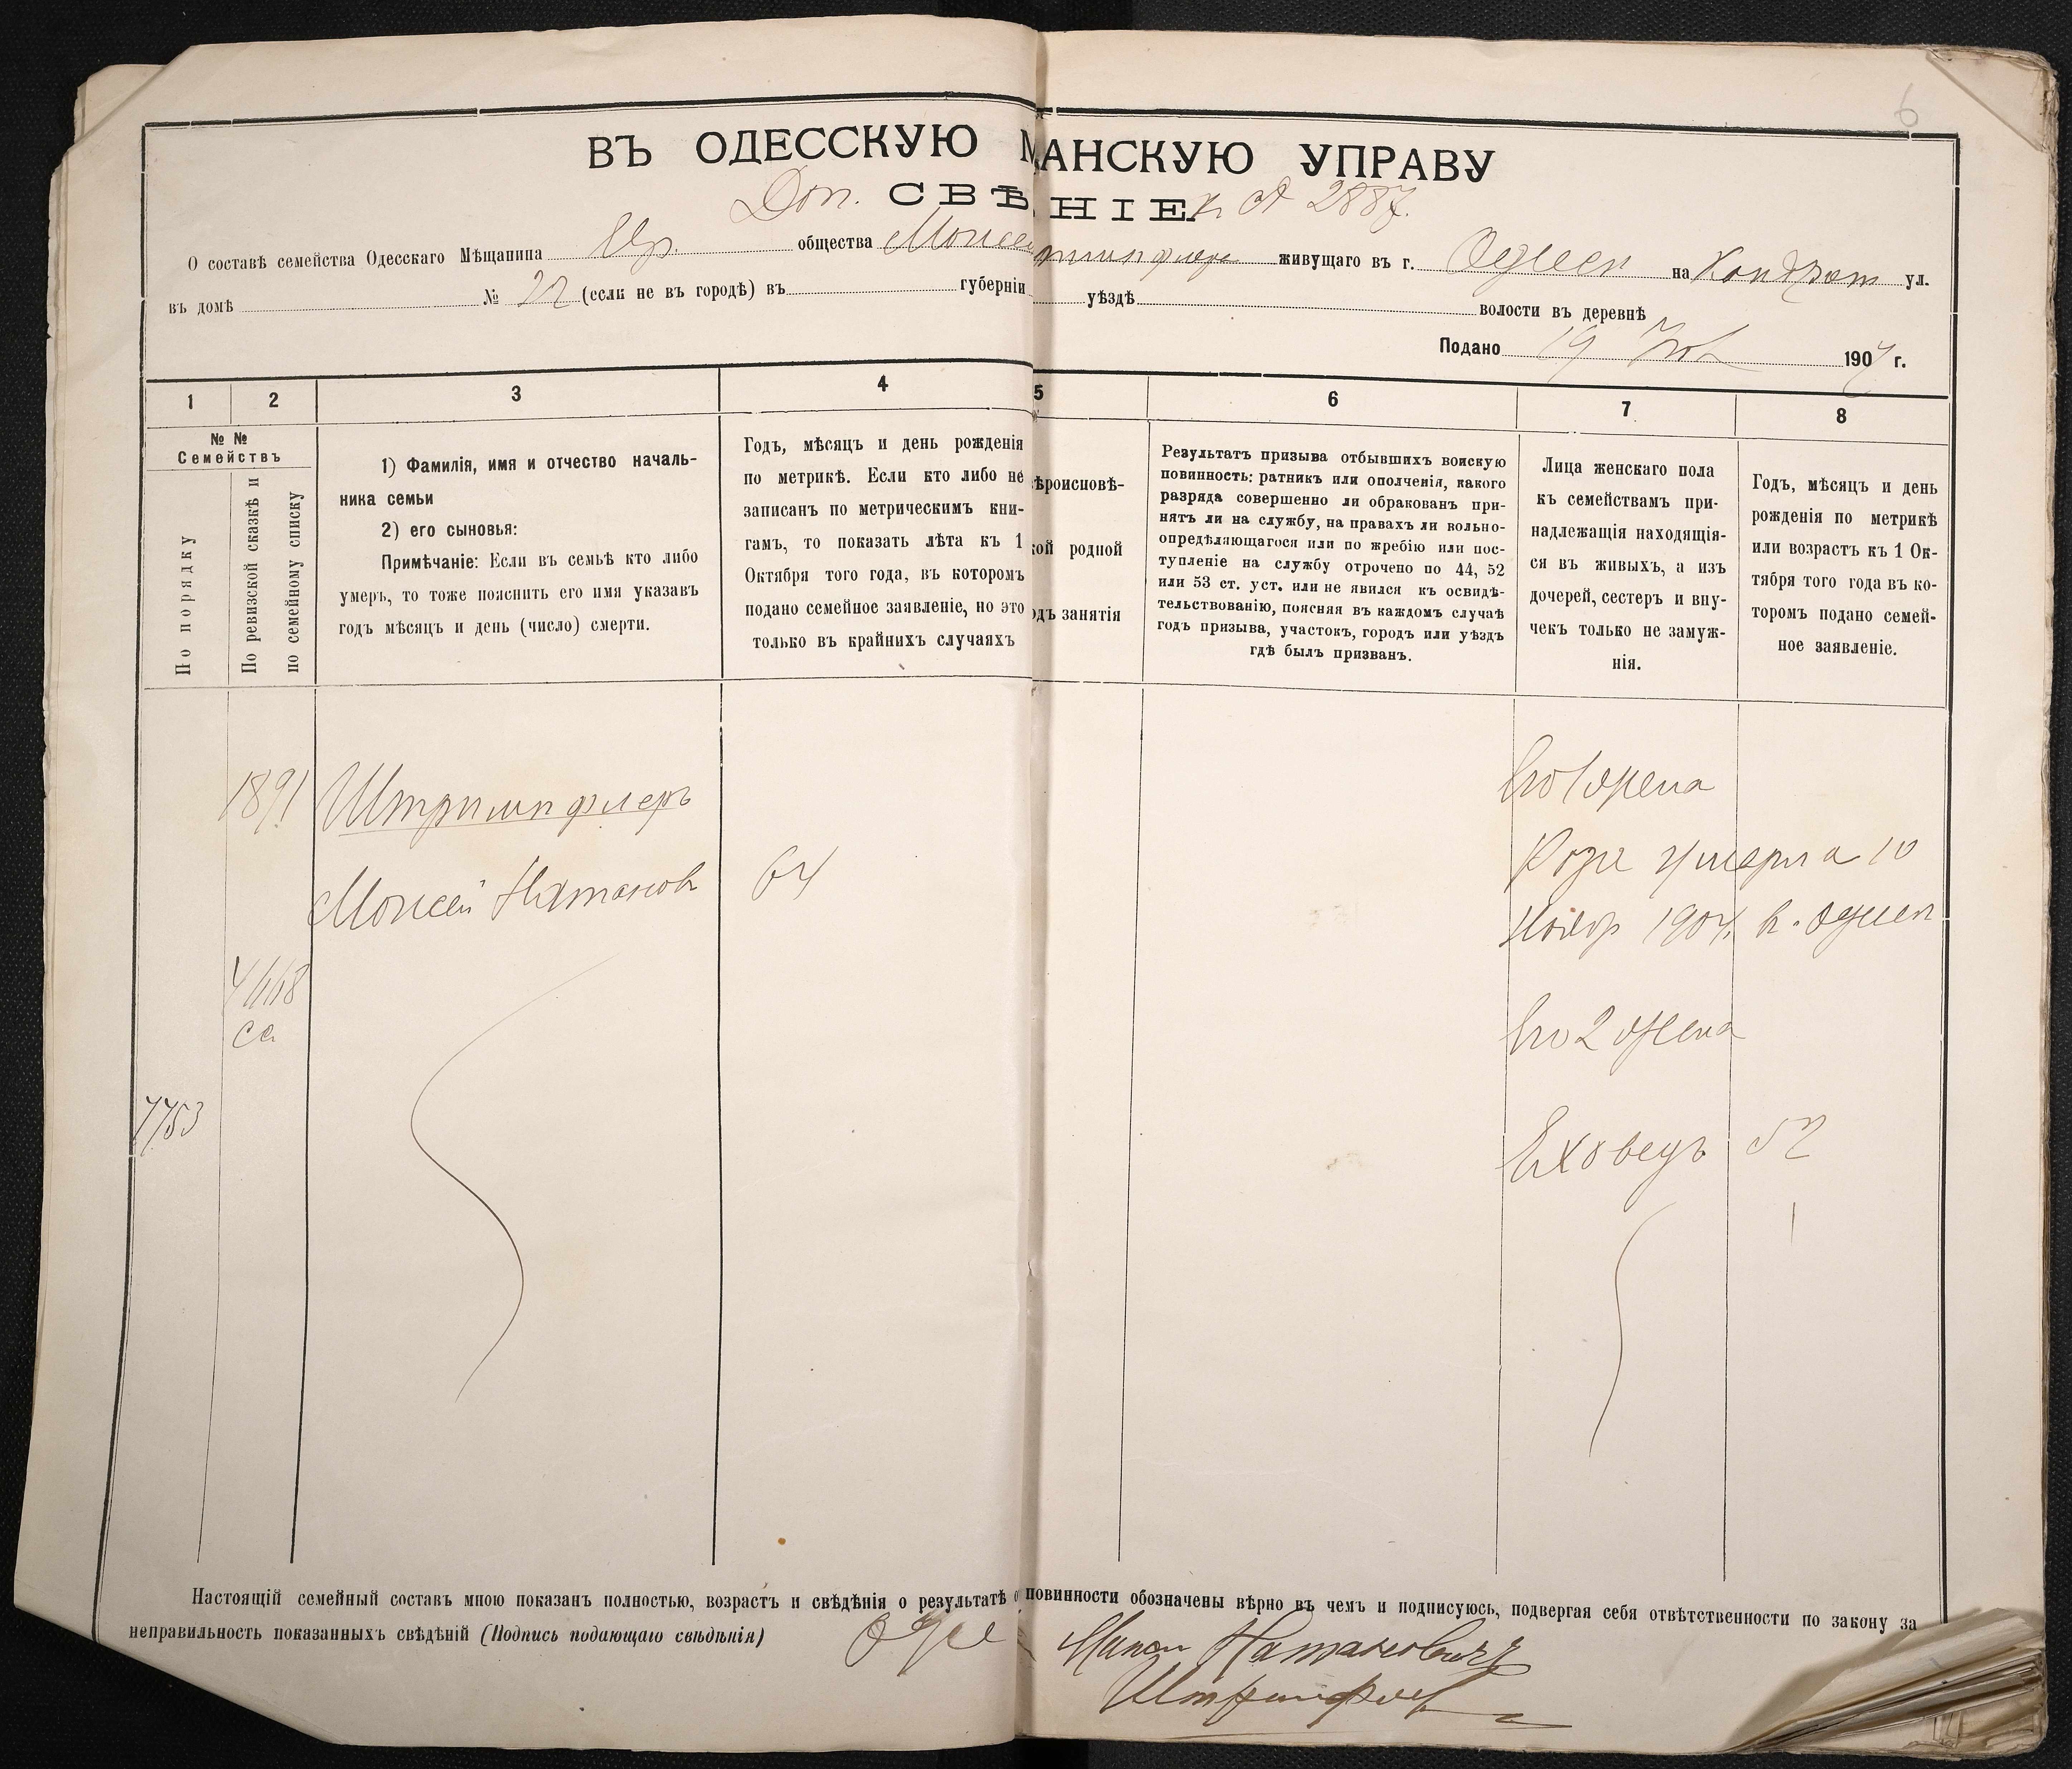 6
ВЪ ОДЕССКУЮ М АНСКУЮ УПРАВУ
Доп. СВѢ НІЕ к 2887.
О составѣ семейства Одесскаго Мѣщанина Евр. общества Моисея живущаго въ г. Одессѣ на ул.
въ домѣ № 22 (если не въ городѣ) въ губерніи уѣздѣ волости въ деревнѣ
Подано 19 190 г.
1 2 3 4 5 6 7 8
№ №
Семействъ
По порядку
По ревизской сказкѣ и
по семейному списку
1) Фамилія, имя и отчество началь-
ника семьи
2) его сыновья:
Примѣчаніе: Если въ семьѣ кто либо
умеръ, то тоже пояснить его имя указавъ
годъ мѣсяцъ и день (число) смерти.
Годъ, мѣсяцъ и день рожденія
по метрикѣ. Если кто либо не
записанъ по метрическимъ кни-
гамъ, то показать лѣта къ 1
Октября того года, въ которомъ
подано семейное заявленіе, но это
только въ крайнихъ случаяхъ
ѣроисповѣ-
кой родной
одъ занятія
Результатъ призыва отбывшихъ воискую
повинность: ратник или ополченія, какого
разряда совершенно ли обракованъ при-
нятъ ли на службу, на правахъ ли вольно-
опредѣляющагося или по жребію или пос-
тупленіе на службу отрочено по 44, 52
или 53 ст. уст. или не явился къ освидѣ-
тельствованію, поясняя въ каждомъ случаѣ
годъ призыва, участокъ, городъ или уѣздъ
гдѣ былъ призванъ.
Лица женскаго пола
къ семействамъ при-
надлежащія находящія-
ся въ живыхъ, а изъ
дочерей, сестеръ и вну-
чекъ только не замуж-
нія.
Годъ, мѣсяцъ и день
рожденія по метрикѣ
или возрастъ къ 1 Ок-
тября того года въ ко-
торомъ подано семей-
ное заявленіе.
1891 Штримпфлеръ
Моисей Натановъ 64
Его 1 жена
Роза умерла 10
Ноябр 1904 в. Одессѣ
Его 2 жена
7753
Еховедъ 52
Настоящій семейный составъ мною показанъ полностью, возрастъ и свѣдѣнія о результатѣ о повинности обозначены вѣрно въ чемъ и подписуюсь, подвергая себя отвѣтственности по закону за
неправильность показанныхъ свѣдѣній (Подпись подающаго свѣдѣнія)
Натановичъ